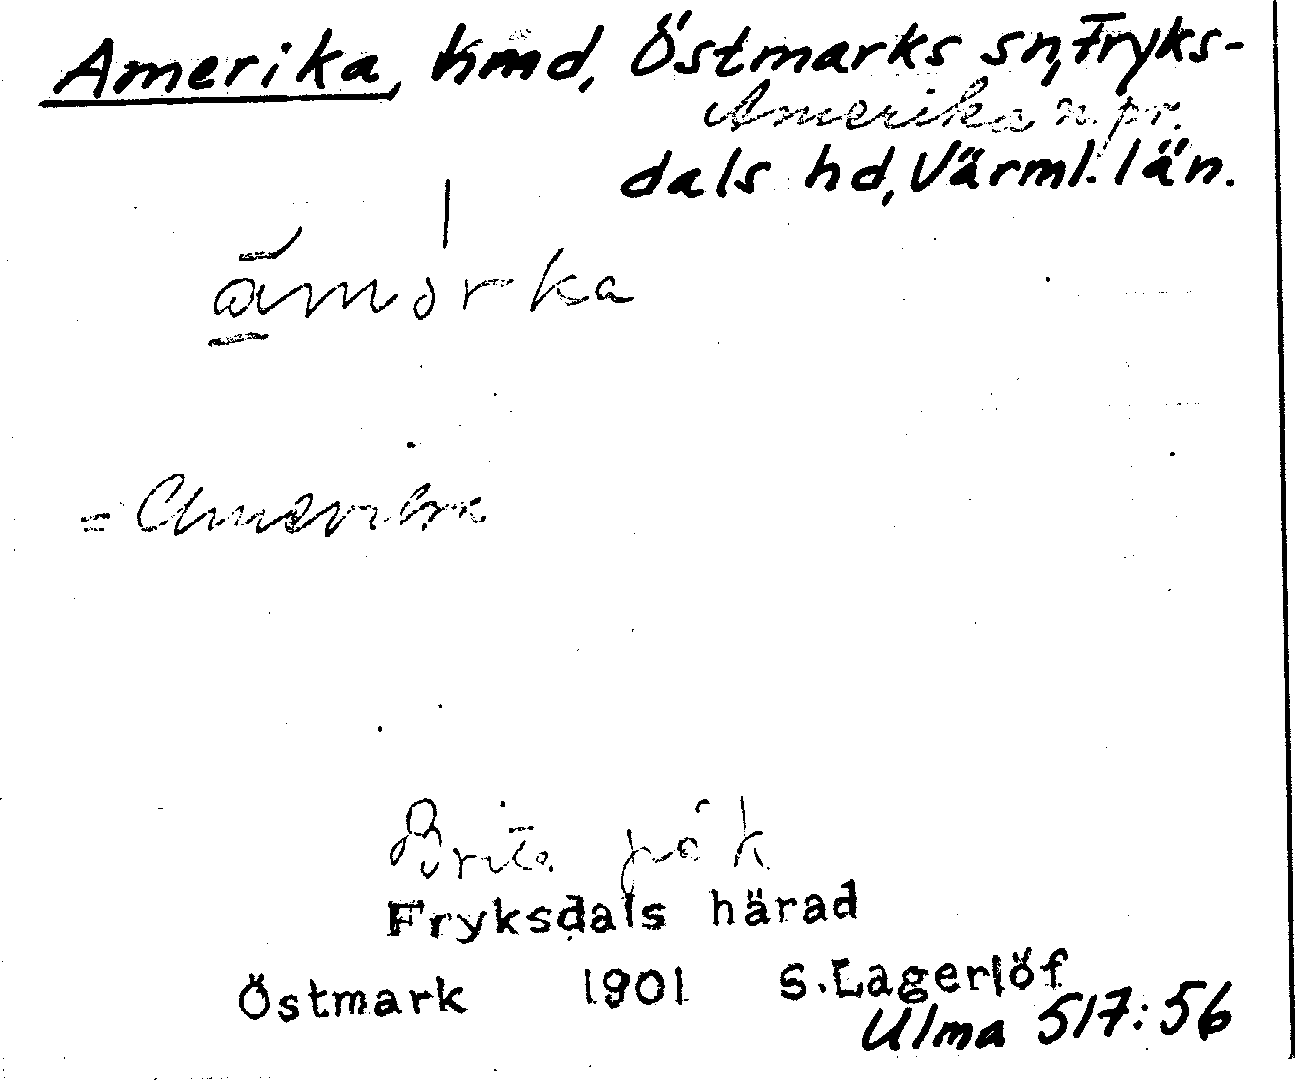 Amerika, hmd, Östmarks sn, Fryks-
Amerika n. pr.
dals hd, Värml. län.
= Amerika
Brita
Fryksdals härad
Östmark 1901 S. Lagerlöf
Ulma 517:56